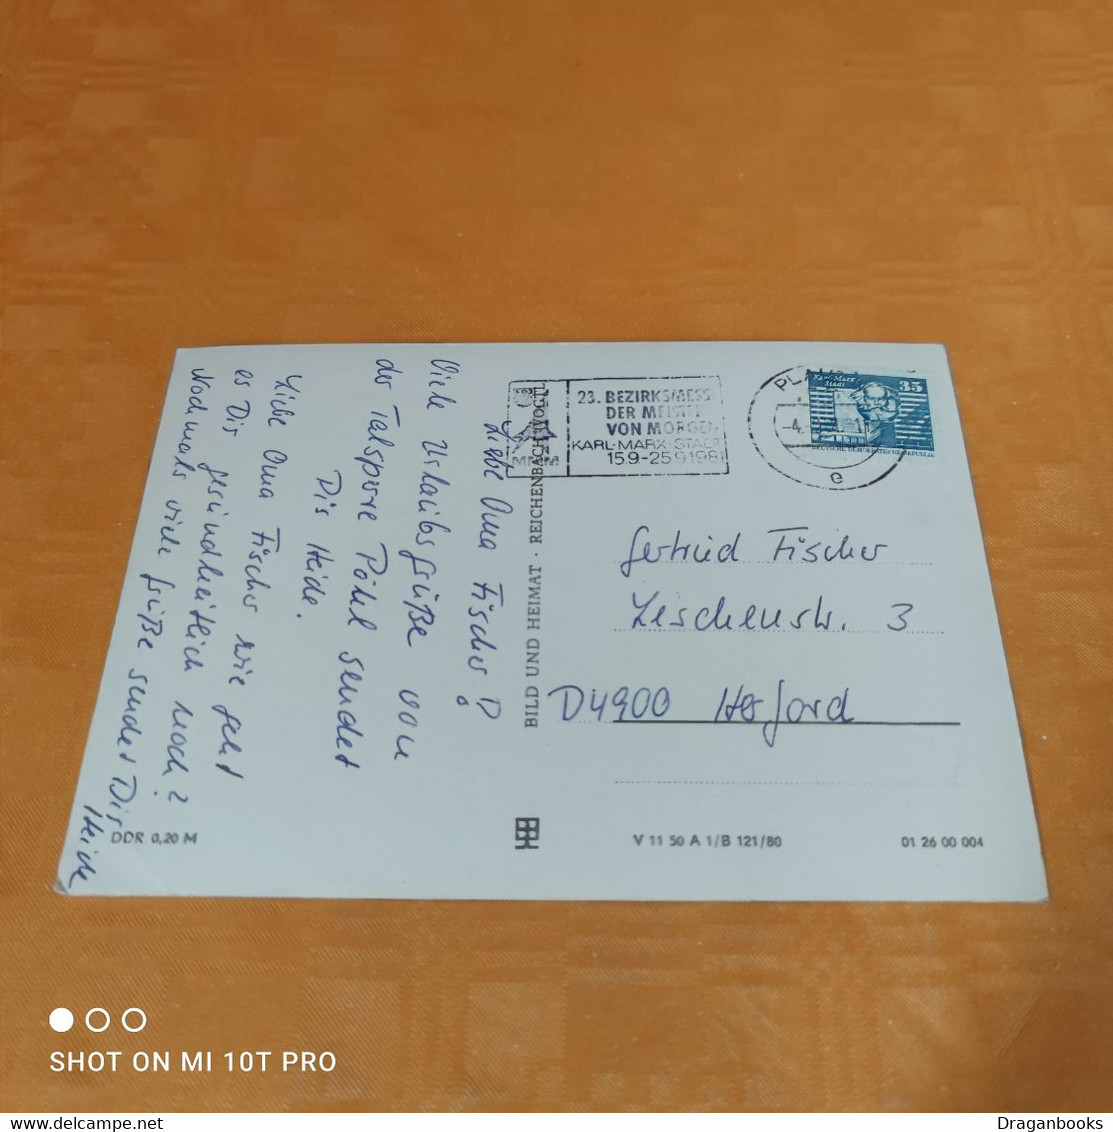 Liebe Oma Fischer!
Viele Urlaubsgrüße von
der Talsperre Pöhl sendet
Dir Heide.
Liebe Oma Fischer wie geht
es Dir gesundheitlich noch?
Nochmals viele Grüße sendet Dir
Heide
DDR 0,20 M
BILD UND HEIMAT · REICHENBACH (VOGTL
23. BEZIRKSMESS
DER MEISTER
VON MORGEN
KARL-MARX-STADT
15.9.-25.9.1981
MMM
PLAU
-4.
e
Karl-Marx-
Stadt
35
DEUTSCHE DEMOKRATISCHE REPUBLIK
Gertrud Fischer
3
D4900 Herford
V 11 50 A 1/B 121/80
01 26 00 004
SHOT ON MI 10T PRO
www.delcampe.net
Draganbooks